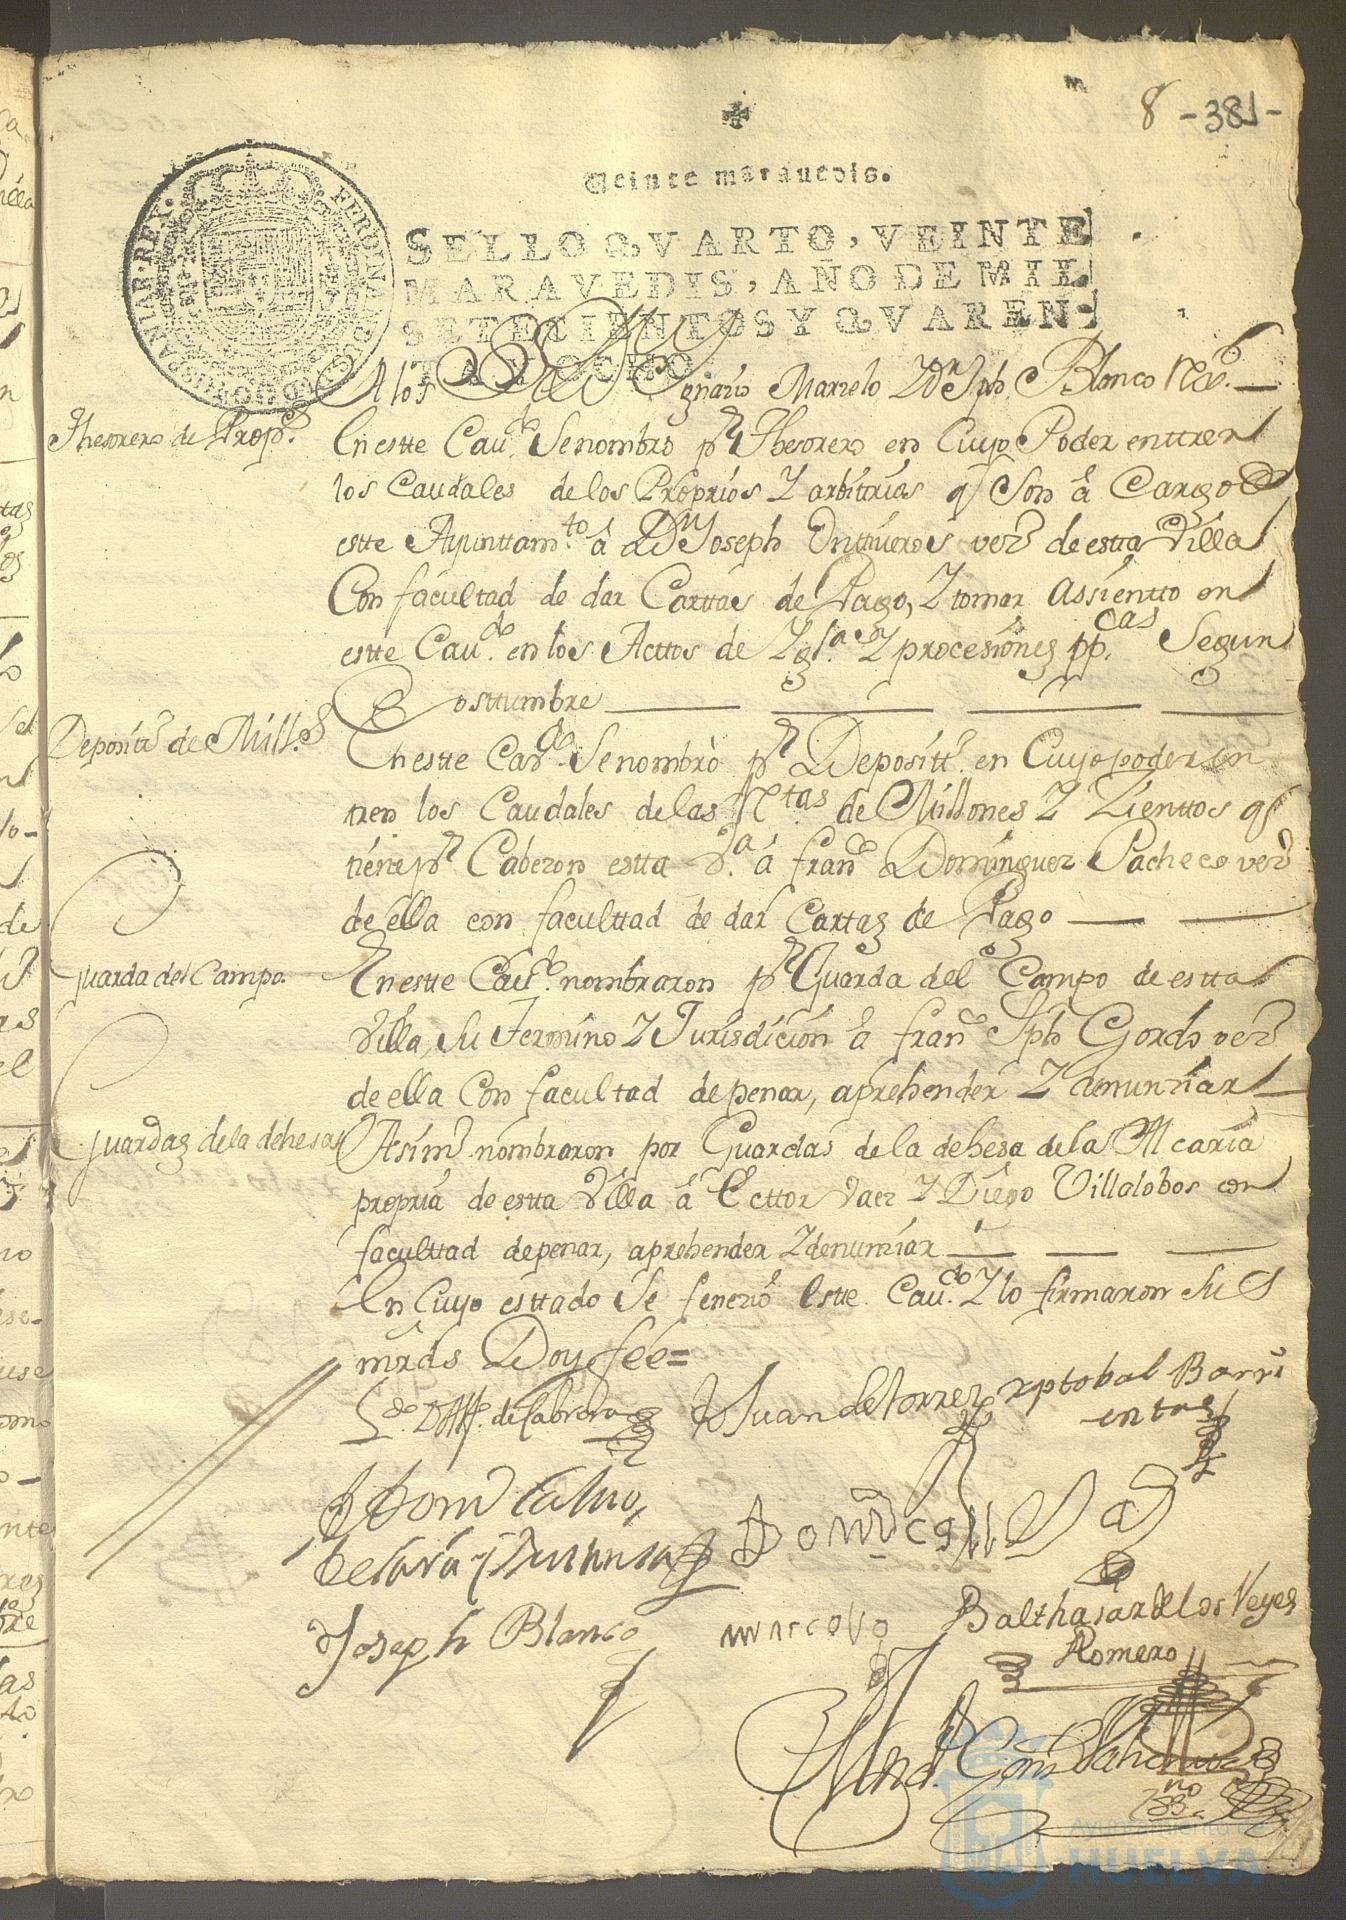 8 -381-
Veinte maravedis.
SELLO QVARTO, VEINTE
MARAVEDIS, AÑO DE MIL
SETECIENTOS Y QVAREN
TA Y OCHO
A los Ygnazio Marzelo Y Dn Jph Blanco
Thesorero de Props.
En estte Cavdo. Se nombro pr Thesorero en Cuyo Poder enttren
los Caudales de los Proprios Y arbitrias q Son â Cargo de
estte Ayunttamto. â Dn Joseph Unttiveros vezo de estta Villa
Con facultad de dar Carttas de Pago, Y tomar Assientto en
estte Cavdo. en los Acttos de Yglª Y procesiones ppcas Segun
Costtumbre
Depositº de Mills
En estte Cavdo. Se nombrò pr Depositt. en Cuyo poder en
tren los Caudales de las Rtas de Millones Y Zienttos q
tiene pr Cabezon estta Vª. â Franco Dominguez Pacheco vezo
de ella con facultad de dar Cartas de Pago
Guarda del Campo.
En estte Cavdo. nombraron pr Guarda del Campo de estta
Villa, Su Termino Y Jurisdicion â Franco Jph Gordo vezo
de ella Con facultad de penar, aprehender Y denunziar
Guardas de la dehesa
Asimo nombraron por Guardas de la dehesa de la Alcaria
propria de estta Villa â Ecttor Vaez Y Diego Villalobos con
facultad de penar, aprehender Y denunziar
En Cuyo esttado Se fenezio Estte Cavdo. Y lo firmaron Sus
mrds Doy fee=
Ldo. de Cabrera
Juan de torrez
Xptobal Barri
entos
Domo Calvo
de Lara y
Domo
Joseph Blanco
marcelo
Balthasar de los Reyes
Romero
Ayuntamiento de
HUELVA